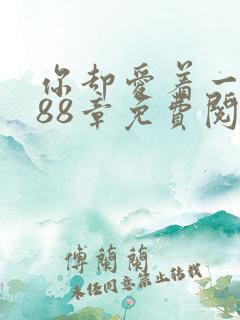 你却爱着一
88章免費閱
傅蘭蘭
未经同意禁止转载